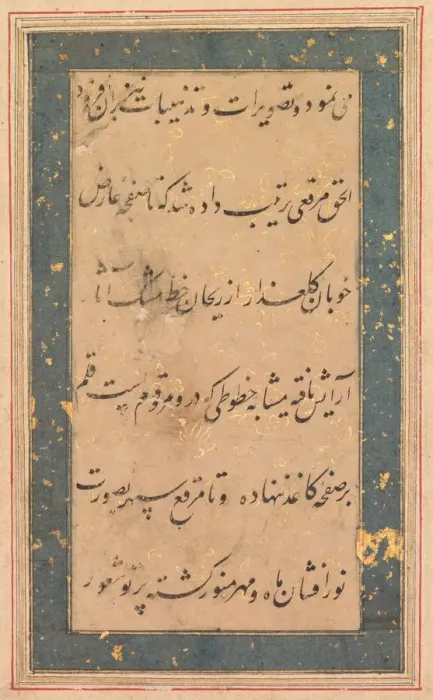 نموده و تصویرات و تذهیبات نیز بران افزود
الحق مرقعی ترتیب داده شد که تا صفحه عارض
خوبان گلعذار از ریحان خط مشک
آرایش یافته مشابه خطوطی که درو مرقوم است قلم
بر صفحه کاغذ ننهاده و تا مرقع سپهر بصورت
نور افشان ماه و مهر منور گشته پرتو شعور